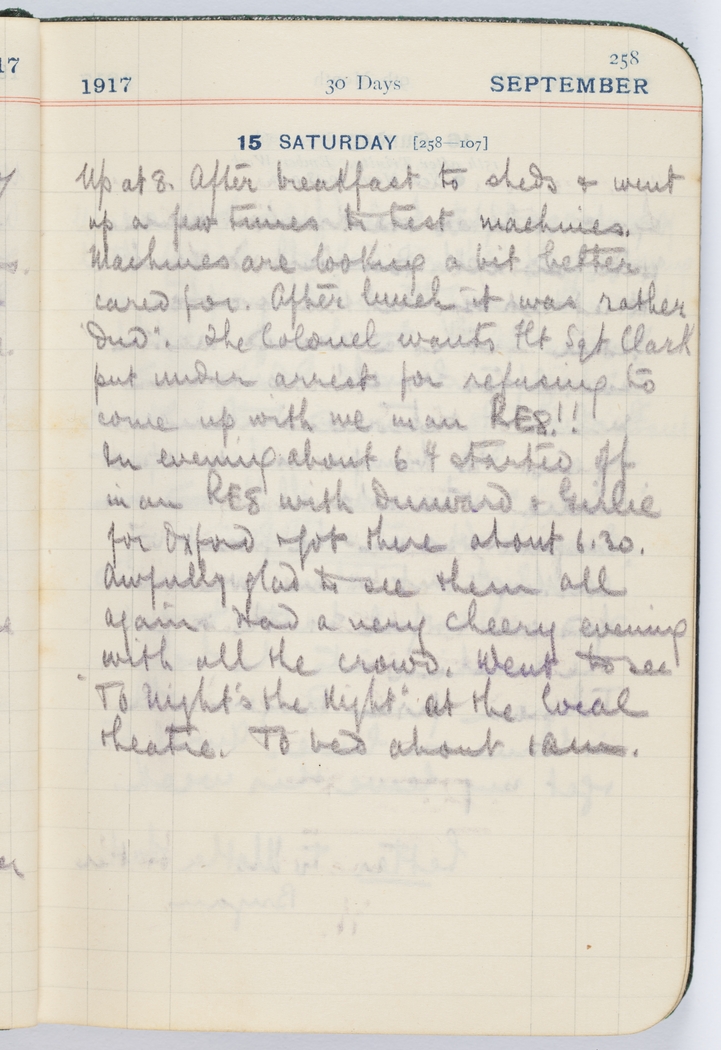 258
1917 30 Days SEPTEMBER
15 SATURDAY [258—107]
Up at 8. After breakfast to sheds & went
up a few times to test machines.
Machines are looking a bit better
cared for. After lunch it was rather
"dud". The Colonel wants Flt Sgt Clark
put under arrest for refusing to
come up with me in an RE8!!
In evening about 6 I started off
in an RE8 with Dunward & Girlie
for Oxford & got there about 6.30.
Awfully glad to see them all
again. Had a very cheery evening
with all the crowd. Went to see
"To Night's the Night" at the local
theatre. To bed about 1 am.